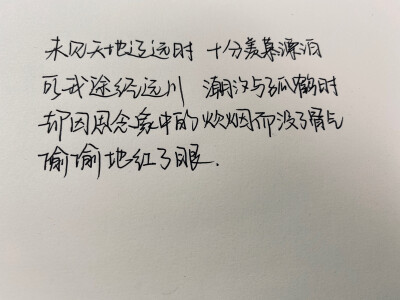 未见天地辽远时 十分羡慕漂泊
可我途经远川 潮汐与孤鹤时
却因思念家中的炊烟而没了骨气
偷偷地红了眼.